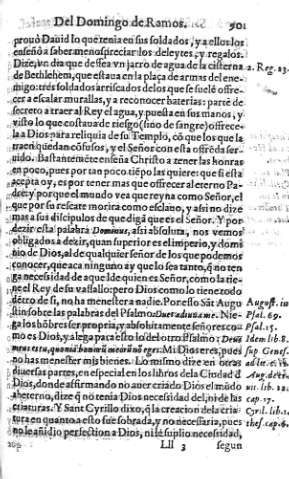 Del Domingo de Ramos. 901
prouò Dauid lo que tenia en sus soldados, y a ellos los
enseñò a saber menospreciar los deleytes, y regalos.
Dize, vn dia que de sea vn jarro de agua de la cisterna 2. Reg. 23.
de Bethlehem, que estaua en la plaça de armas del ene-
migo: tres soldados arriscados de los que se suelè ofre-
cer a escalar murallas, y a reconocer baterias: partè de
secreto a traer al Rey el agua, y puesta en sus manos, y
visto lo que costaua de riesgo (sino de sangre) ofrece-
la a Dios para reliquia de su Templo, cõ que los que la
traen quedan cõfusos, y el Señor con esta ofrẽda ser-
uido. Bastantemẽte enseña Christo a tener las honras
en poco, pues por tan poco tiẽpo las quiere: que si esta
acepta oy, es por tener mas que ofrecer al eterno Pa-
dre: y porque el mundo vea que reyna como Señor, el
que por su rescate morira como esclauo, y assi no dize
mas a sus dicipulos de que digã que es el Señor. Y por
dezir esta palabra Dominus, assi absoluta, nos vemos
obligados a dezir, quan superior es el imperio, y domi
nio de Dios, al de qualquier señor de los que podemos
conocer, que aca ninguno ay que lo sea tanto, q̃ no ten
ga necessidad de aq̃ que de quien es Señor, como la tie-
ne el Rey de su vassallo: pero Dios como lo tiene todo
dẽtro de si, no ha menester a nadie. Por esso Sãt Augu August. in
stin sobre las palabras del Psalmo: Psal. 69.
ga los hõbres ser propria, y absolutamente señores co- Psal. 15.
mo es Dios, y alega para esto lo del otro Psalmo: Deus Idem lib. 8.
meus es tu, quoniã bonorũ meorũ nõ eges: Mi Dios eres, pues sup Genes.
no has menester mis bienes. Lo mismo dize en otras
diuersas partes, en especial en los libros de la Ciudad ď
Dios, donde affirmando no auer criado Dios el mũdo
ab eterno, dize q̃ no tenia Dios necessidad del, ni de las cap. 17.
criaturas. Y Sant Cyrillo dixo, q̃ la creacion de la cria- Cyril. lib. 1.
tura en quanto a esto fue sobrada, y no necessaria, pues thes. cap. 6.
no le añidio perfection a Dios, ni le suplio necessidad,
Lll 3 segun